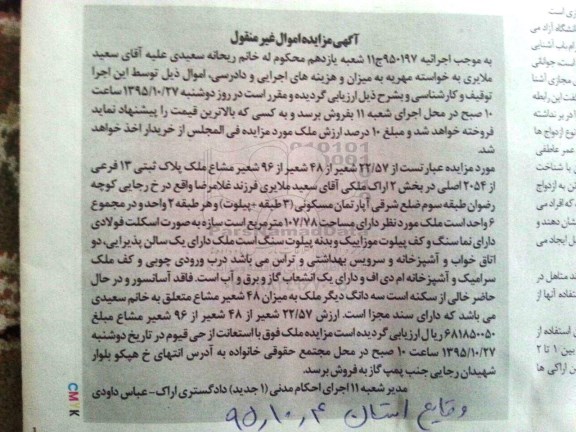 آگهی مزایده اموال غیر منقول
به موجب اجرائیه ۹۵۰۱۹۷ج۱۱ شعبه یازدهم محکوم له خانم ریحانه سعیدی علیه آقای سعید
ملایری به خواسته مهریه به میزان و هزینه های اجرایی و دادرسی، اموال ذیل توسط این اجرا
توقیف و کارشناسی و بشرح ذیل ارزیابی گردیده و مقرر است در روز دوشنبه ۱۳۹۵/۱۰/۲۷ ساعت
۱۰ صبح در محل اجرای شعبه ۱۱ بفروش برسد و به کسی که بالاترین قیمت را پیشنهاد نماید
فروخته خواهد شد و مبلغ ۱۰ درصد ارزش ملک مورد مزایده فی المجلس از خریدار اخذ خواهد
شد.
مورد مزایده عبارتست از ۲۲/۵۷ شعیر از ۴۸ شعیر از ۹۶ شعیر مشاع ملک پلاک ثبتی ۱۳ فرعی
از ۲۰۵۴ اصلی در بخش ۲ اراک ملکی آقای سعید ملایری فرزند غلامرضا واقع در خ رجایی کوچه
رضوان طبقه سوم ضلع شرقی آپارتمان مسکونی (۳ طبقه +پیلوت) و هر طبقه ۲ واحد و در مجموع
۶ واحد است ملک مورد نظر دارای مساحت ۱۰۷/۷۸ متر مربع است سازه به صورت اسکلت فولادی
دارای نما سنگ و کف پیلوت موزاییک و بدنه پیلوت سنگ است ملک دارای یک سالن پذیرایی، دو
اتاق خواب و آشپزخانه و سرویس بهداشتی و تراس می باشد درب ورودی چوبی و کف ملک
سرامیک و آشپزخانه ام دی اف و دارای یک انشعاب گاز و برق و آب است. فاقد آسانسور و در حال
حاضر خالی از سکنه است سه دانگ دیگر ملک به میزان ۴۸ شعیر مشاع متعلق به خانم سعیدی
می باشد که دارای سند مجزا است. ارزش ۲۲/۵۷ شعیر از ۴۸ شعیر از ۹۶ شعیر مشاع مبلغ
۶۸۱۸۵۰۰۵۰ ریال ارزیابی گردیده است مزایده ملک فوق با استعانت از حی قیوم در تاریخ دوشنبه
۱۳۹۵/۱۰/۲۷ ساعت ۱۰ صبح در محل مجتمع حقوقی خانواده به آدرس انتهای خ هپکو بلوار
شهیدان رجایی جنب پمپ گاز به فروش برسد.
مدیر شعبه ۱۱ اجرای احکام مدنی (۱ جدید) دادگستری اراک- عباس داودی
وقایع استان ۹۵،۱۰،۴
CMYK
ParsNamadData